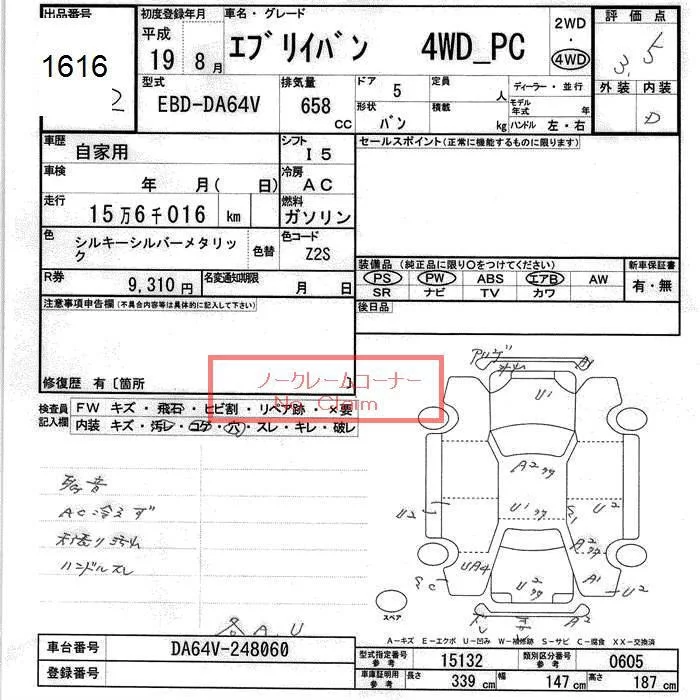 出品番号
1616
2
初度登録年月
平成
19 8月
車名・グレード
エブリイバン 4WD_PC
2WD
・
4WD
評価点
3.5
外装 内装
D
型式
EBD-DA64V
排気量
658
CC
ドア 5
形状
バン
定員
人
積載
kg
ディーラー・並行
モデル年式 年
ハンドル 左・右
車歴
自家用
シフト
I5
セールスポイント(正常に機能するものに限ります)
車検
年 月( 日)
冷房
AC
走行
15万6千016 km
燃料
ガソリン
色
シルキーシルバーメタリック
色替
色コード
Z2S
装備品(純正品に限り○をつけてください)
PS PW ABS エアB AW
SR ナビ TV カワ
新車保証書
有・無
R券
9,310円
名変通知期限
月 日
後日品
注意事項申告欄(不具合内容等は具体的に記入して下さい)
修復歴 有〔箇所 〕
ノークレームコーナー
No Claim
検査員記入欄
FW キズ・飛石・ヒビ割・リペア跡・×要
内装 キズ・汚レ・コゲ・穴・スレ・キレ・破レ
AC冷えず
ハンドルスレ
A U
U1
A2
U1
U2
U2
S1
A2
UA4
A1
U2
U2
SC
スペア
A-キズ E-エクボ U-凹み W-補修跡 S-サビ C-腐食 XX-交換済
車台番号
DA64V-248060
登録番号
型式指定番号
参考
15132
類別区分番号
参考
0605
車庫証明用
参考
長さ 339cm 幅 147cm 高さ 187cm